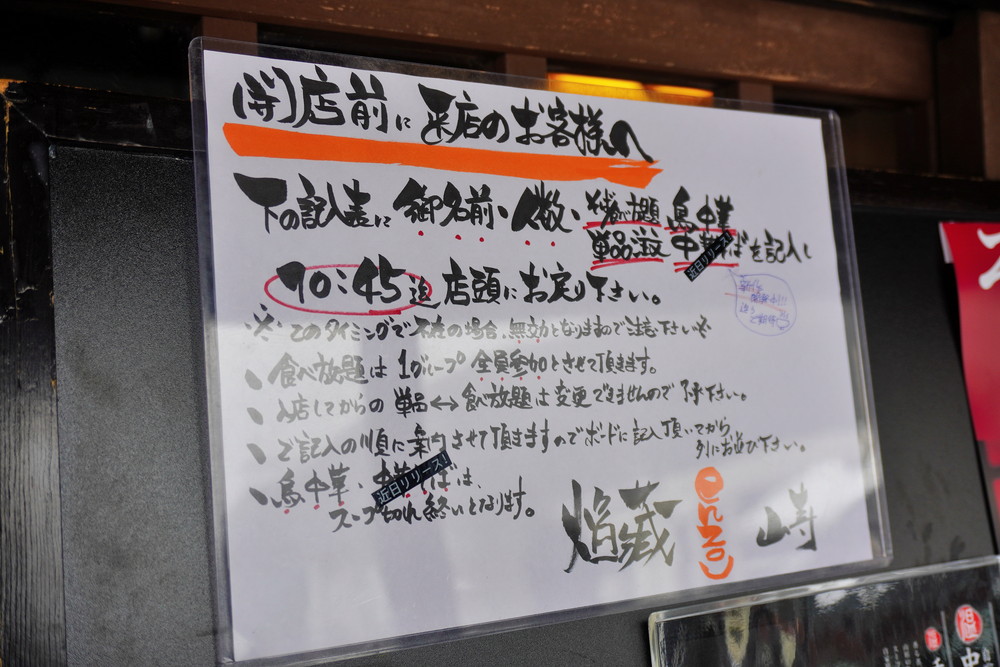 開店前に来店のお客様へ
下の記入表に御名前、人数、食べ放題 鳥中華
単品注文 中華そばを記入し
近日リリース!
10:45迄店頭にお戻り下さい。
※このタイミングで不在の場合、無効となりますので注意下さい※
、食べ放題は1グループ全員参加とさせて頂きます。
、入店してからの単品↔食べ放題は変更できませんので了承下さい。
、ご記入の順に案内させて頂きますのでボードに記入頂いてから
列にお並び下さい。
、鳥中華、中華そばは、
近日リリース!
スープ切れ終いとなります。
焔藏 山寺